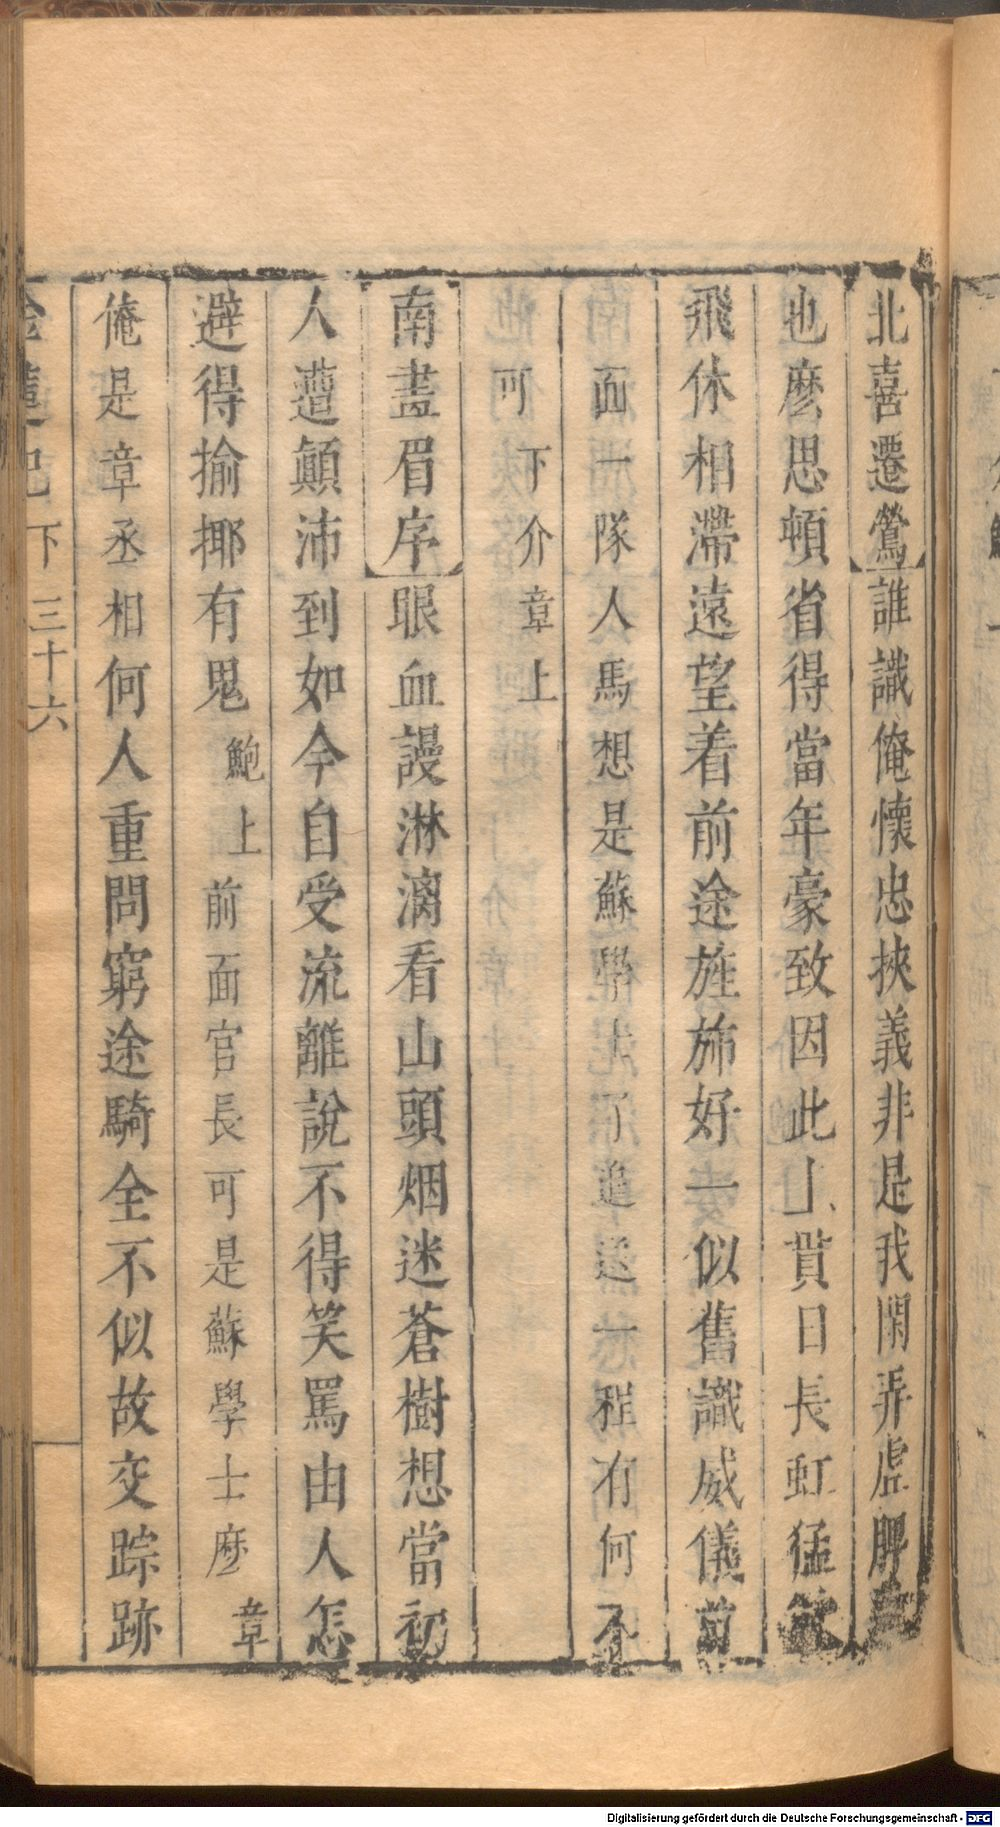 北喜遷鶯誰識俺懷忠挾義非是我閑弄虛脾
也麽思頓省得當年豪致因此上貫日長虹猛
飛休相滯遠望着前途旌斾好一似舊識威儀前
面一隊人馬想是蘇學士了追送一程有何不
可下介章上
南畫眉序眼血謾淋漓看山頭烟迷蒼樹想當初
人遭顛沛到如今自受流離說不得笑罵由人怎
避得揄揶有鬼鮑上前面官長可是蘇學士麽章
俺是章丞相何人重問窮途騎全不似故交踪跡
金蓮記下三十六
Digitalisierung gefördert durch die Deutsche Forschungsgemeinschaft - DFG